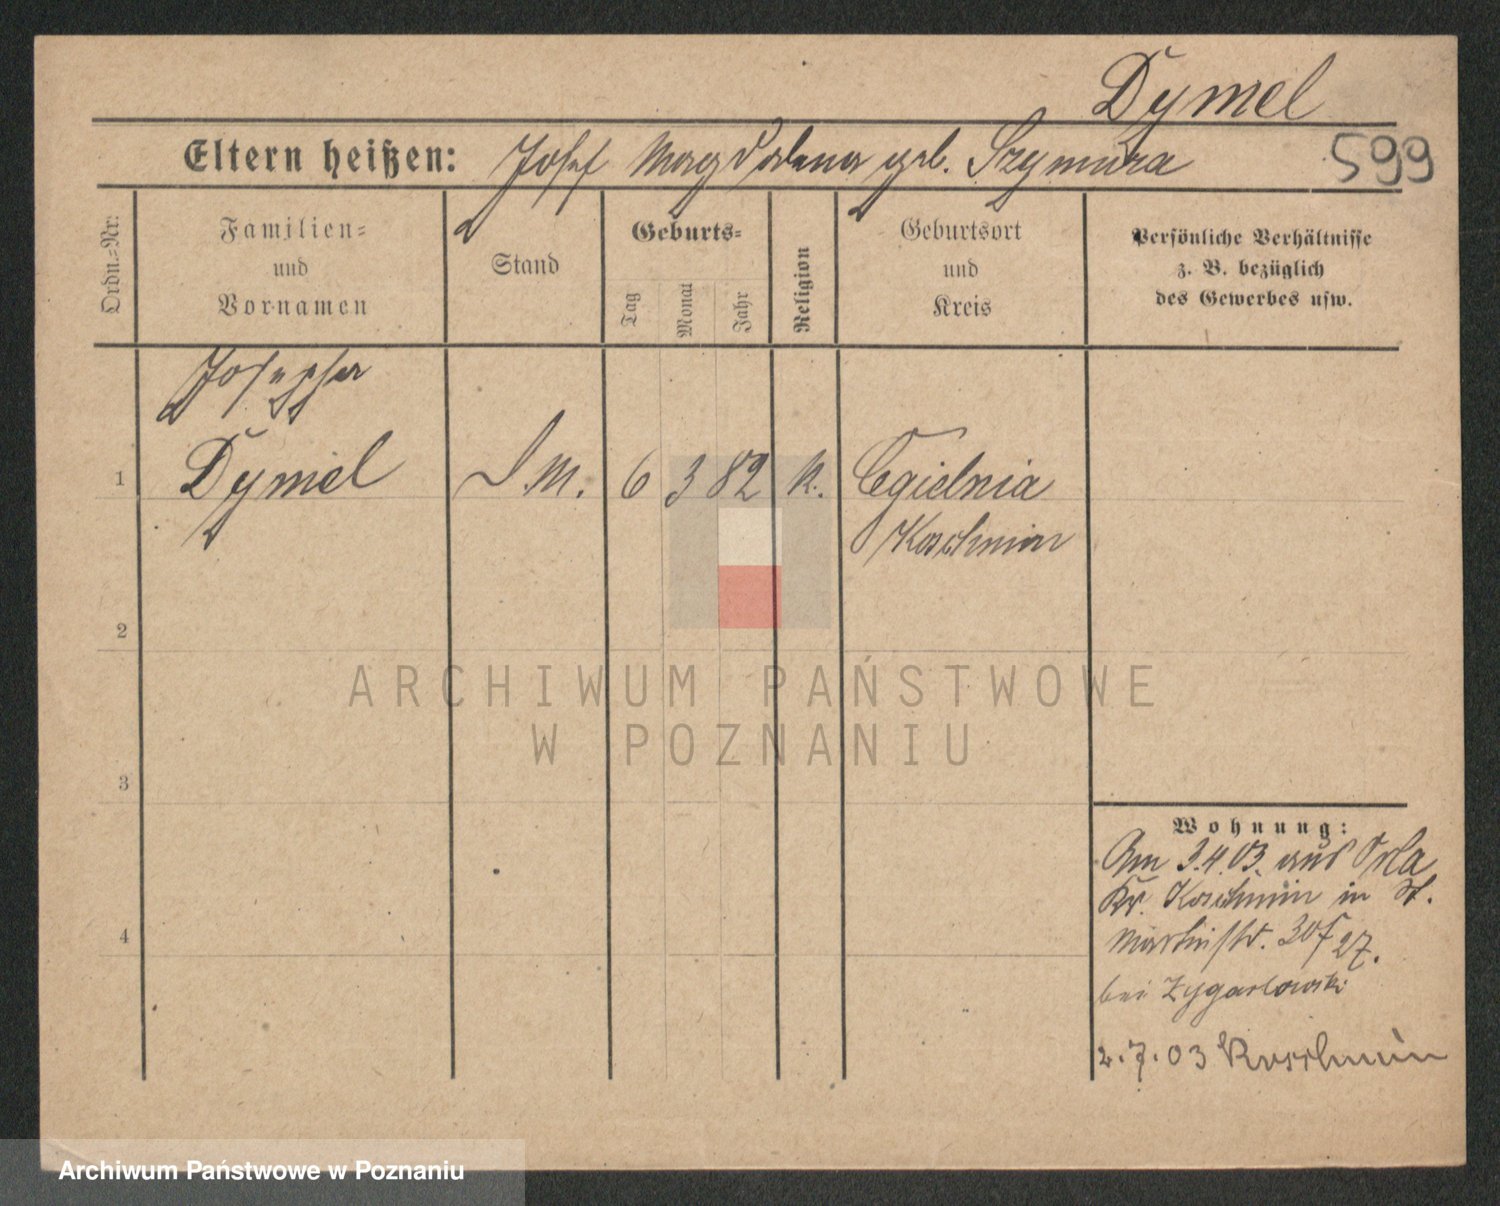 Dymel
Eltern heißen: Josef Magdalena geb. Szymura
599
Ordn.-Nr:
Familien-
und
Vornamen
Stand
Geburts-
Tag
Monat
Jahr
Religion
Geburtsort
und
Kreis
Persönliche Verhältnisse
z. B. bezüglich
des Gewerbes usw.
Josepha
1 Dymel D.M. 6 3 82 K. Cegielnia
Koschmin
2
3
4
Wohnung:
Am 3.4.03. aus Orla
Kr. Koschmin in St.
Martinstr. 30 27.
bei Zygarlowski
2.7.03 Koschmin
ARCHIWUM PAŃSTWOWE
W POZNANIU
Archiwum Państwowe w Poznaniu